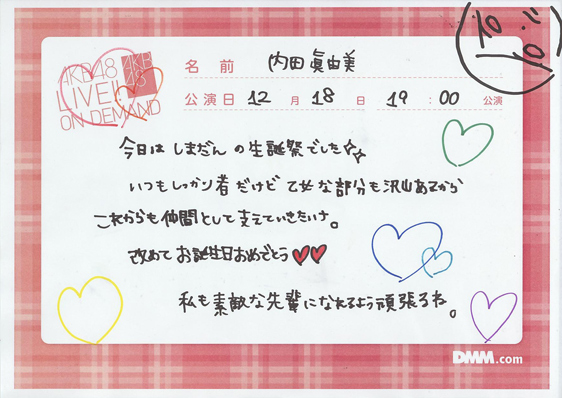 AKB48
LIVE!!
ON DEMAND
AKB
48
名 前 内田眞由美
公演日 12 月 18 日 19 : 00 公演
今日は しまだん の生誕祭でした
いつもしっかり者だけど 乙女な部分も沢山あるから
これからも仲間として支えていきたいな。
改めて お誕生日おめでとう
私も素敵な先輩になれるよう頑張るね。
DMM.com